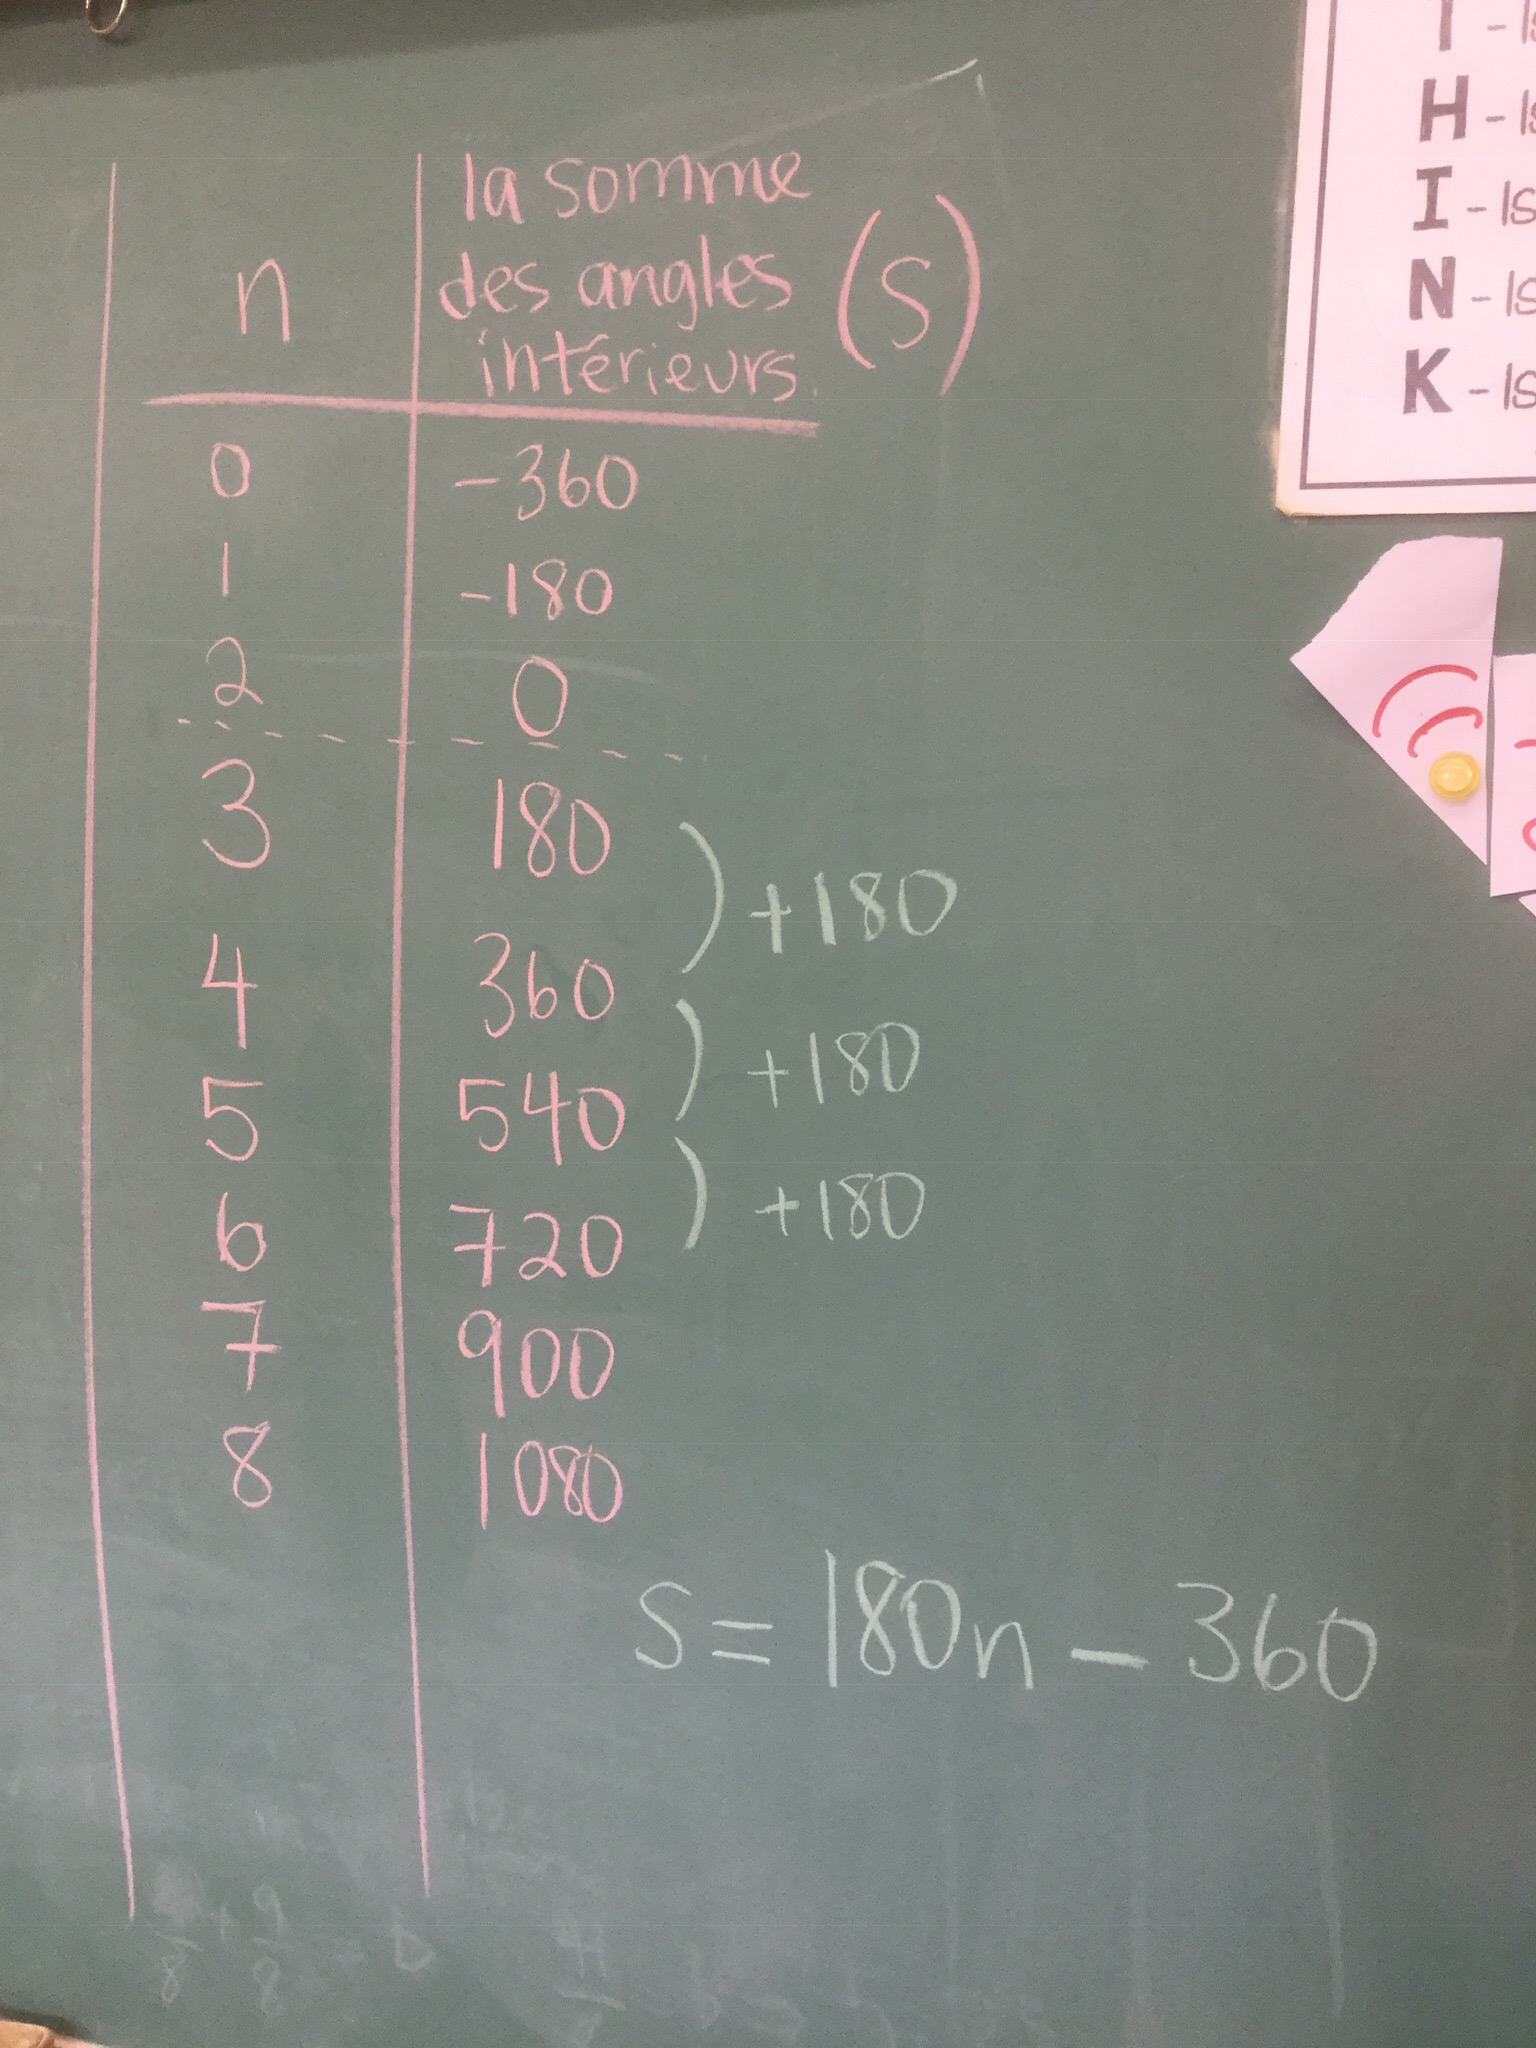 n
la somme
des angles
intérieurs.
(S)
0 -360
1 -180
2 0
3 180
+180
4 360
+180
5 540
+180
6 720
7 900
8 1080
S = 180n - 360
H - Is
I - Is
N - Is
K - Is